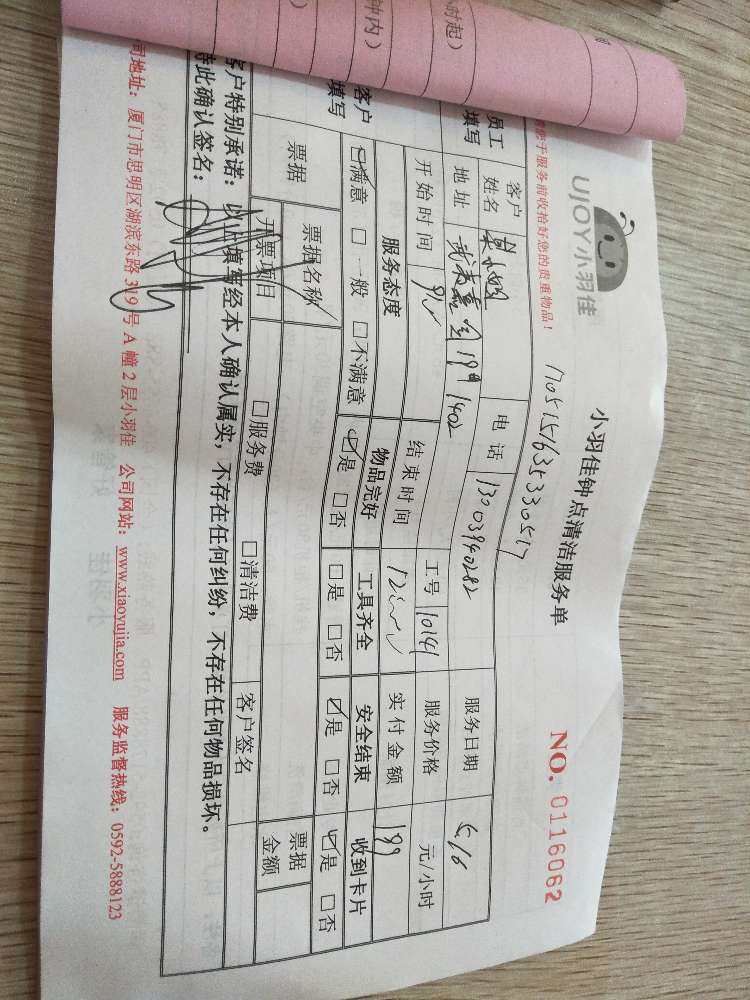 UJOY小羽佳
小羽佳钟点清洁服务单
NO. 0116062
您于服务前收拾好您的贵重物品！
1705151635330517
员工填写
客户姓名
电话 13003940282
服务日期 5.16
地址 19# 1402
工号 10141
服务价格 元/小时
开始时间
结束时间
实付金额 199
客户填写
服务态度 物品完好 工具齐全 安全结束 收到卡片
☑满意 □一般 □不满意 ☑是 □否 □是 □否 ☑是 □否 ☑是 □否
票据
票据名称
开票项目 □服务费 □清洁费
客户签名
票据金额
客户特别承诺：以上填写经本人确认属实，不存在任何纠纷，不存在任何物品损坏。
特此确认签名：
司地址：厦门市思明区湖滨东路 319 号 A 幢 2 层小羽佳 公司网站：www.xiaoyujia.com 服务监督热线：0592-5888123
时起）
钟内）